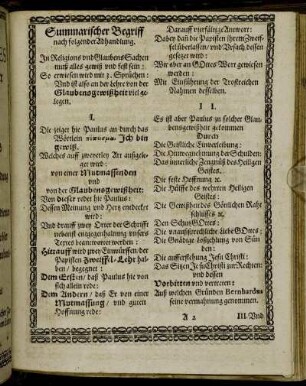 Summarischer Begriff
nach folgender Abhandlung.
In Religions und Glaubens Sachen
muß alles gewiß und fest sein:
So erwiesen wird mit 2. Sprüchen:
Und ist also an der Lehre von der
Glaubensgewißheit viel gelegen.
I.
Die zeiget hie Paulus an durch das
Wörtlein Ich bin
gewiß.
Welches auff zweyerley Art außgeleget
wird:
von einer Mutmassenden
und
von der Glaubensgewißheit:
Von dieser redet hie Paulus:
Dessen Meinung und Hertz entdecket
wird:
Und darauff zwey Örter der Schrifft
unsers
Textes beantwortet werden:
Hierauff wird zwey Einwürffen der
Papisten Zweiffel-Lehr halben
/ begegnet:
Dem Ersten / daß Paulus hie von
sich allein rede:
Dem Andern / daß Er von einer
Mutmassung / und guten
Hoffnung rede:
Darauff vierfältige Antwort:
Dabey daß die Papisten ihrem Zweiffel
überlassen / und Ursach dessen
gesetzet wird:
Wir aber an GOttes Wort gewiesen
werden:
Mit Einführung der Trostreichen
Nahmen desselben.
II.
Es ist aber Paulus zu solcher Glaubensgewißheit
gekommen
Durch
Die Geistliche Einverleibung:
Die Hinwegnehmung der Schulden:
Das innerliche Zeugniß des Heiligen
Geistes.
Die feste Hoffnung &c.
Die Hülffe des wehrten Heiligen
Geistes:
Die Gewißheit des Göttlichen Rathschlusses
&c.
Den Schutz GOttes:
Die unaußsprechliche Liebe GOttes:
Die Gnädige loßzehlung von Sünden:
Die aufferstehung Jesu Christi:
Das Sitzen Jesu Christi zur Rechten:
und dessen
Vorbitten und vertreten:
Auß welchen Gründen Bernhardus
seine vernehmung genommen.
III. Und